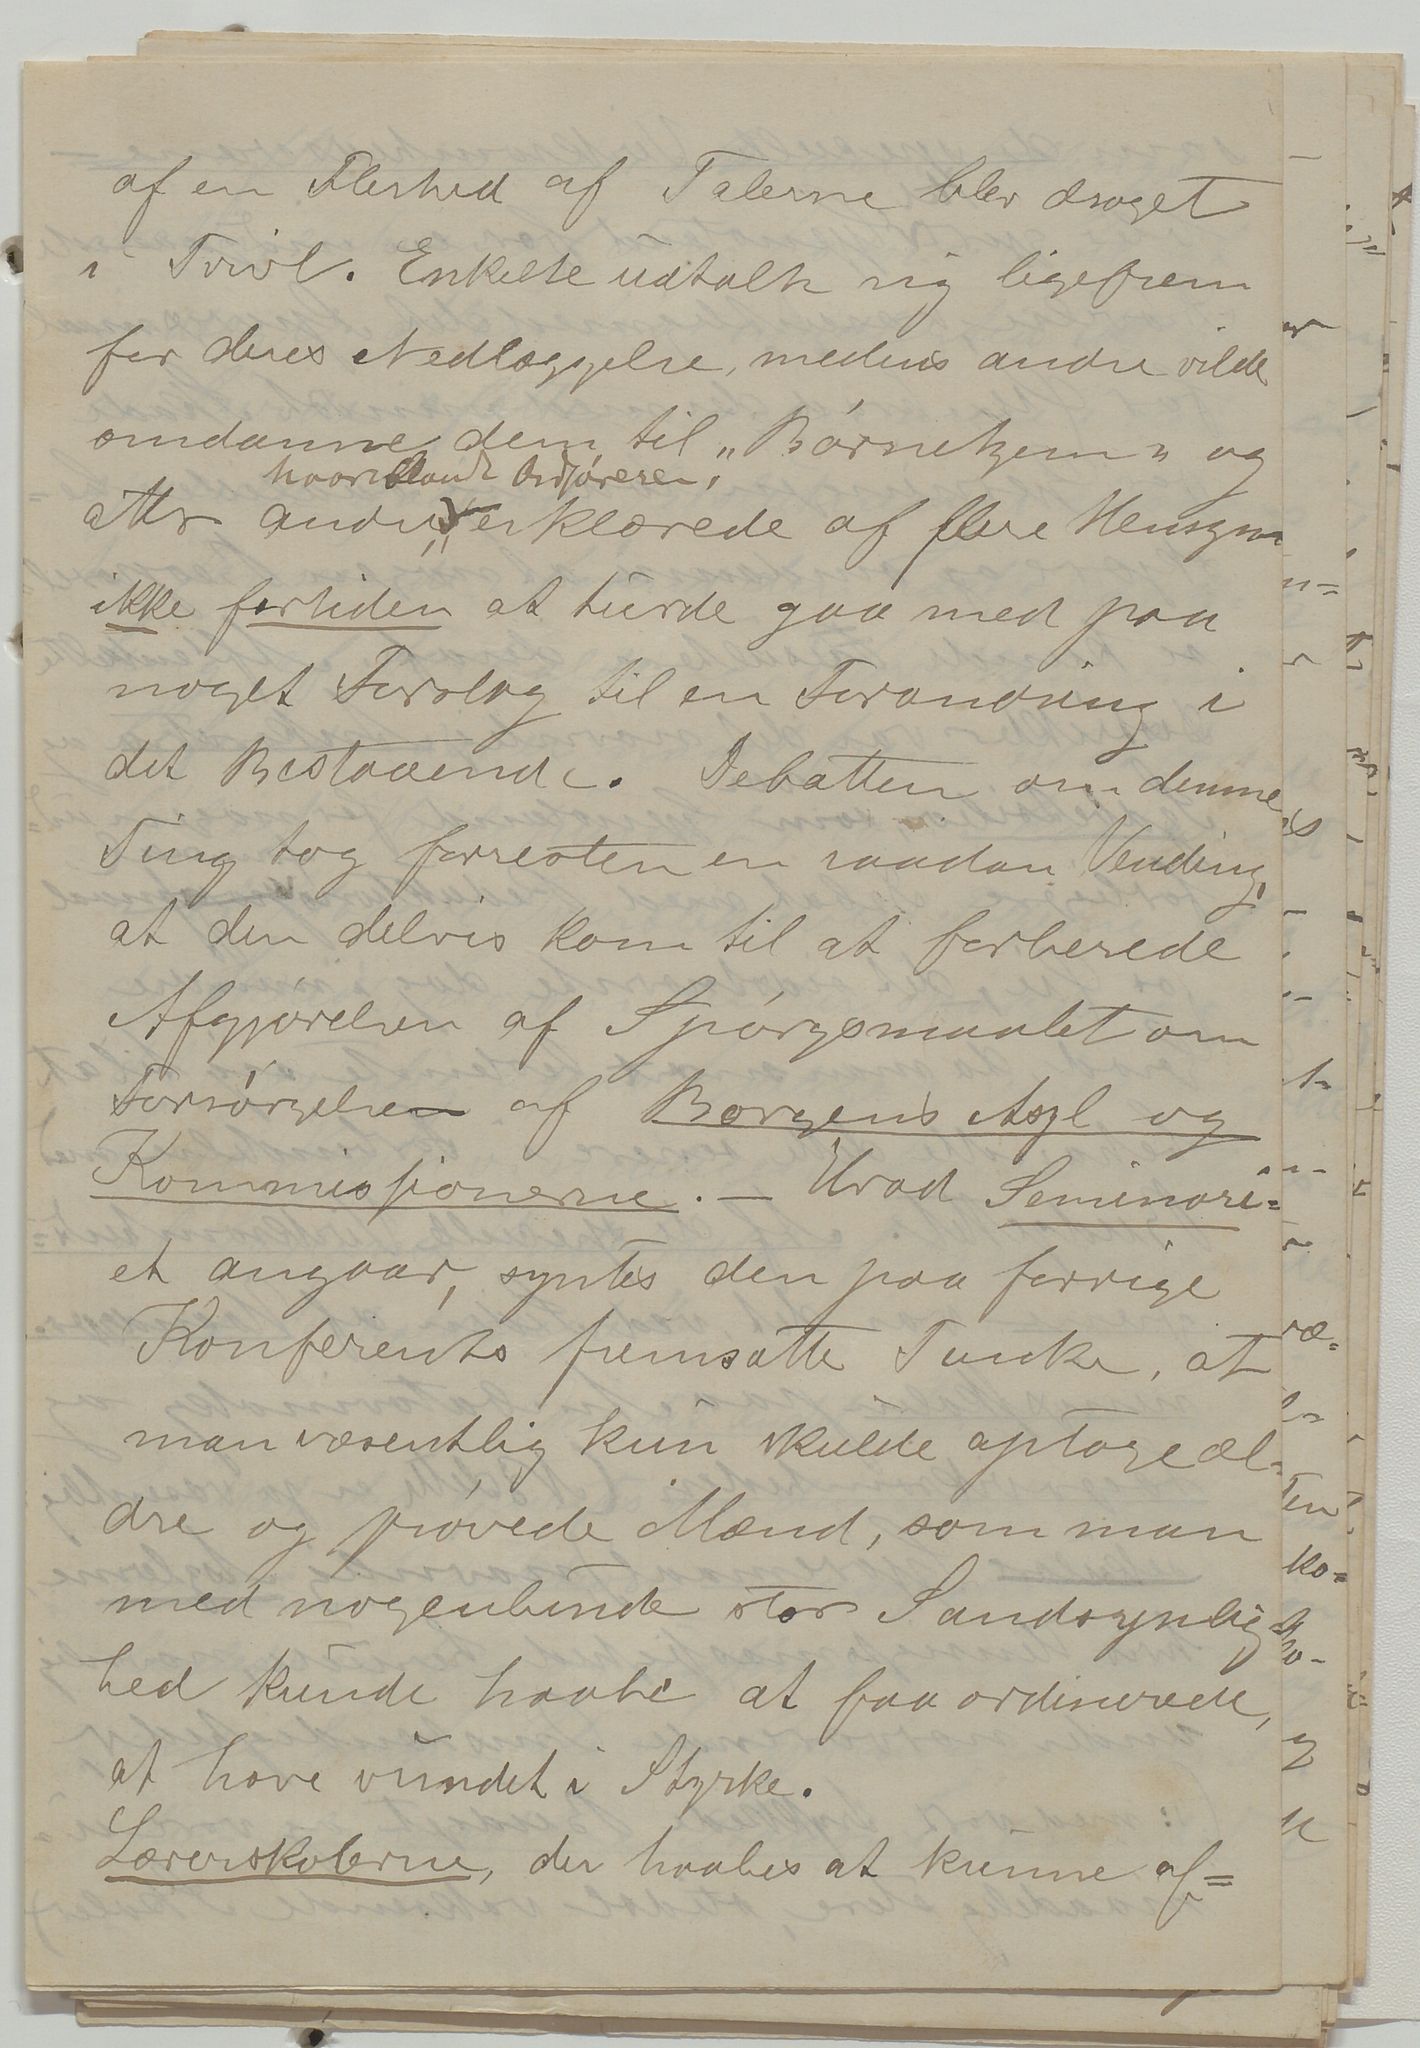 af en Flerhed af Talerne blev draget
i Tvivl. Enkelte udtalte sig ligefrem
for deres Nedlæggelse, medens andre vilde
omdanne dem til „Børnehjem" og
hvoriblandt Ordføreren,
atter andre erklærede af flere Hensyn
ikke fortiden at turde gaa med paa
noget Forslag til en Forandring i
det Bestaaende. Debatten om denne
Ting tog forresten en saadan Vending,
at den delvis kom til at forberede
Afgjørelsen af Spørgsmaalet om
Forsørgelsen af Børgens Asyl og
Kommissjonerne. — Hvad Seminari=
et angaar, syntes den paa forrige
Konferents fremsatte Tanke, at
man væsentlig kun skulde optage æl-
dre og prøvede Mænd, som man
med nogenlunde stor Sandsynlig
hed kunde haabe at faa ordinerede,
at have vundet i Styrke.
Lærerskolerne, der haabes at kunne af=